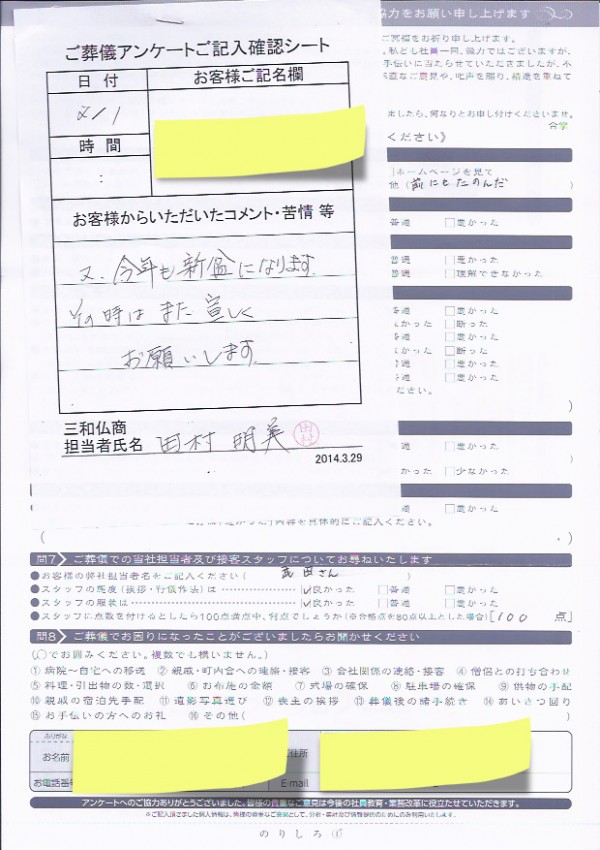 ご葬儀アンケートご記入確認シート
日付
お客様ご記名欄
2/1
時間
:
お客様からいただいたコメント・苦情 等
又、今年も新盆になります。
その時はまた宜しく
お願いします。
三和仏商
担当者氏名 田村 明美
2014.3.29
協力をお願い申し上げます
ご冥福をお祈り申し上げます。
ください》
ホームページを見て
他(前にもたのんだ)
普通 □悪かった
普通 □悪かった
普通 □理解できなかった
普通 □悪かった
□断った
普通 □悪かった
□悪かった
□断った
普通 □悪かった
普通 □悪かった
ください。
普通 □悪かった
かった □少なかった
普通 □悪かった
問7 ご葬儀での当社担当者及び接客スタッフについてお尋ねいたします
●お客様の弊社担当者名をご記入ください(武田さん)
●スタッフの態度(挨拶・行儀作法)は ☑良かった □普通 □悪かった
●スタッフの服装は ☑良かった □普通 □悪かった
●スタッフに点数を付けるとしたら100点満点中、何点でしょうか(※合格点を80点以上とした場合)[100 点]
問8 ご葬儀でお困りになったことがございましたらお聞かせください
(○でお囲みください。複数でも構いません。)
①病院〜自宅への移送 ②親戚・町内会への連絡・接客 ③会社関係の連絡・接客 ④僧侶との打ち合わせ
⑤料理・引出物の数・選択 ⑥お布施の金額 ⑦式場の確保 ⑧駐車場の確保 ⑨供物の手配
⑩親戚の宿泊先手配 ⑪遺影写真選び ⑫喪主の挨拶 ⑬葬儀後の諸手続き ⑭あいさつ回り
⑮お手伝いの方へのお礼 ⑯その他( )
ふりがな
お名前
住所
お電話番
E-mail
アンケートへのご協力ありがとうございました。皆様の貴重なご意見は今後の社員教育・業務改革に役立たせていただきます。
のりしろ①